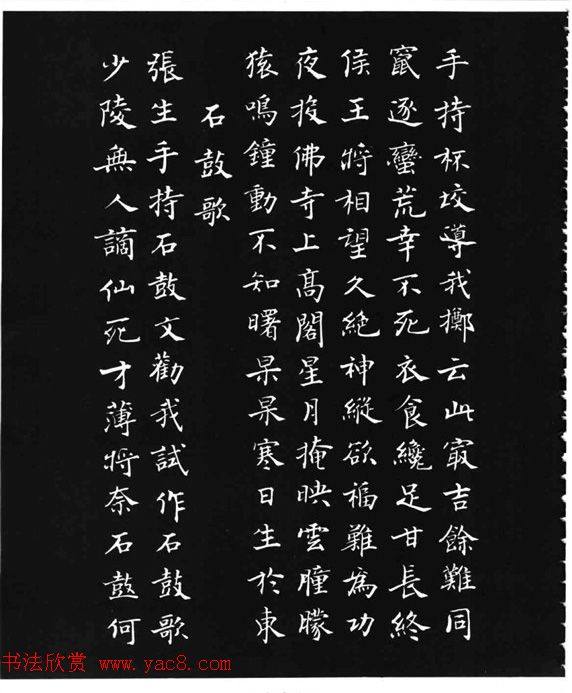 手持杯珓導我擲云此冣吉餘難同
竄逐蠻荒幸不死衣食纔足甘長終
侯王將相望久絕神縱欲福難為功
夜投佛寺上高閣星月掩映雲朣朦
猿鳴鐘動不知曙杲杲寒日生於東
石鼓歌
張生手持石鼓文勸我試作石鼓歌
少陵無人謫仙死才薄將奈石鼓何
书法欣赏 www.yac8.com